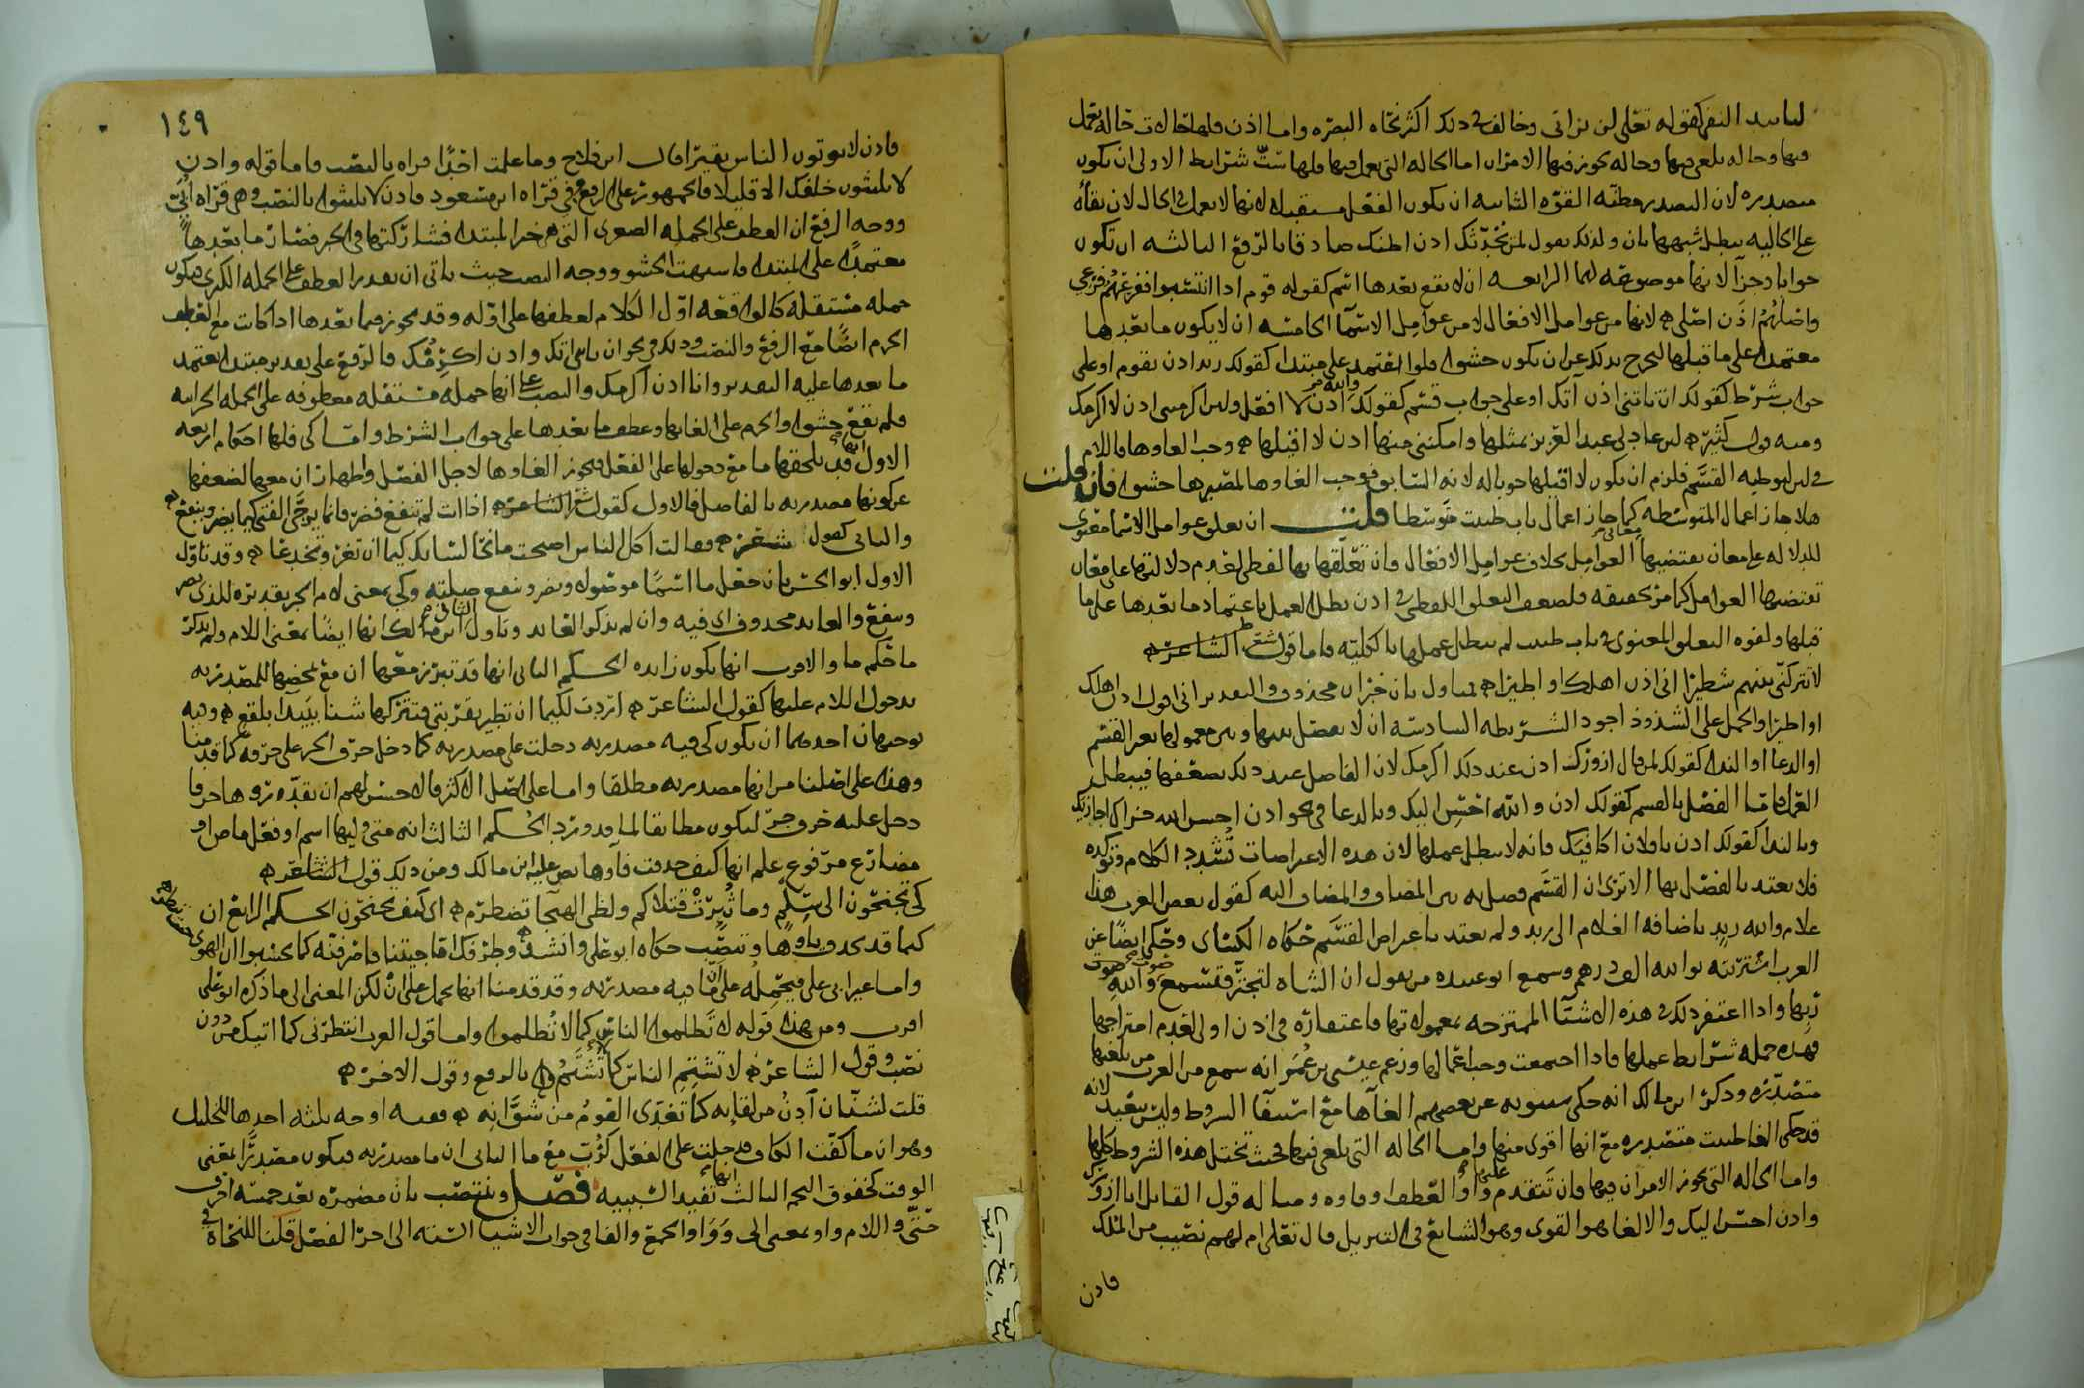 لتأبيد النفي كقوله تعلى لن تراني وخالف في ذلك أكثر نحاه البصره واما اذن فلها حالات حاله تعمل
فيها وحاله تلغى فيها وحاله يجوز فيها الامران اما الحاله التي تعمل فيها فلها ستّ شرايط الاولى ان تكون
متصدره لان التصدر مظنّه القوّه الثانيه ان يكون الفعل مستقبلا لانها لا تعمل في الحال لان بقاه
على الحاليه يبطل شبهها بان ولذلك تقول لمن يحدّثك اذن اظنك صادقا بالرّفع الثالثه ان تكون
جوابا وجزآ لانها موضوعه لهما الرابعه ان لا يقع بعدها اسم كقوله قوم اذا انتسبوا ففرعهُم فرعي
واصلهُم اذن اصلي ه لانها من عوامل الافعال لا من عوامل الاسمآ الخامسه ان لا يكون ما بعدها
معتمدا على ما قبلها ليخرج بذلك عن ان تكون حشوا فلو اعتمد على مبتدا كقولك زيد اذن يقوم او على
جواب شرط كقولك ان تاتني اذن آتك او على جواب قسم كقولك والله اذن لا افعل ولين اكرمتني اذن لا اكرمك
ومنه قول كثيّر ه لين عاد لي عبد العزيز بمثلها وامكنني منها اذن لا اقيلها ه وجب الغاوها فاللام
في لين لتوطيه القسَم فلزم ان يكون لا اقيلها جوابا له لانه السّابق فوجب الغاوها لمصيرها حشوا فان قلت
هلا جاز اعمال المتوسّطه كما جاز اعمال باب ظننت متوسّطا قلت ان تعلق عوامل الاسما معنوي
للدلاله على معان يقتضيها العوامل بخلاف عوامل الافعال فان تعلّقها بها لفظي لعدم دلالتها على معان
تقتضيها العوامل كما مرّ تحقيقه فلضعف التعلق اللفظي في اذن بطل العمل باعتماد ما بعدها على ما
قبلها ولقوه التعلق المعنوي في باب ظننت لم يبطل عملها بالكليّه فاما قول الشاعر ه
لا تتركنّي فيهم شطيرا اني اذن اهلك او اطيرا ه فمتاول بان خبر ان محذوف والتقدير اني اقول اذن اهلك
او اطيرا والحمل على الشذوذ اجود الشريطه السادسه ان لا يفصل بينها وبين معمولها بغير القسَم
او الدعا او الندا كقولك لمن قال ازورك اذن عند ذلك اكرمك لان الفاصل عند ذلك يضعفها فيبطل
العمل فاما الفصل بالقسم كقولك اذن والله احسن اليك وبالدعا في نحو اذن احسن الله جزاك اجازيك
وبالندا كقولك اذن يا فلان اكافيك فانه لا يبطل عملها لان هذه الاعتراضات تُشدد الكلام وتوكده
فلا يعتد بالفصل بها الا ترى ان القسَم فصل به بين المضاف والمضاف اليه كقول بعض العرب هذا
غلام والله زيد باضافه الغلام الى زيد ولم يعتد باعتراض القسَم حَكاه الكسائي وحُكى ايضًا عن
العرب اشتريته بوالله الف درهم وسمع ابو عبيده من يقول ان الشاه لتجترّ فتسمع صوت والله
ربها واذا اغتفر ذلك في هذه الاشيآ الممتزجه بمعمولاتها فاغتفاره في اذن اولى لعدم امتزاجها
فهذه جمله شرايط عملها فاذا اجتمعت وجب اعمالها وزعم عيسى بن عُمَر انه سمع من العرب من يلغيها
متصدّره وذكر ابن مالك انه حكى سيبويه عن بعضهم الغآها مع استيفآ الشروط وليس ببعيد لانه
قد حكى الغا ظننت متصدره مع انها اقوى منها واما الحاله التي تلغى فيها فحيث تختل هذه الشروط كلها
واما الحاله التي يجوز الامران فيها فان تتقدم عليها واو العطف او فاوه ومثاله قول القايل انا ازورك
واذن احسن اليك والالغا هو القوى وهو الشايع في التنزيل قال تعلى ام لهم نصيب من الملك
فاذن
١٤٩
فاذن لا يوتون الناس نقيرًا قال ابن فلاح وما علمت احدًا قراه بالنصب فاما قوله واذن
لا يلبثون خلفك الا قليلا فالجمهور على الرفع وفي قراه ابن مسعود فاذن لا يلبثوا بالنصب وهي قراه اُبَيّ
ووجه الرفع ان العطف على الجمله الصغرى التي هي خبر المبتدا فشاركتها في الخبر فصار ما بعدها
معتمدا على المبتدا فاشبهت الحشو ووجه النصب حيث ياتي ان يقدر العطف على الجمله الكبرى فيكون
جمله مستقله كالواقعه اوّل الكلام لعطفها على اوّله وقد يجوز فيما بعدها اذا كانت مع العطف
الجزم ايضًا مع الرفع والنصب وذلك في نحو ان تاتني اتك واذن اكرمُك فالرّفع على تقدير مبتدا يعتمد
ما بعدها عليه التقدير وانا اذن اكرمك والنصب على انها جمله مستقله معطوفه على الجمله الجزائيه
فلم تقع حشوا والجزم على الغائها وعطف ما بعدها على جواب الشرط واما كى فلها احكام اربعه
الاول انها قد تلحقها ما مع دخولها على الفعل فيجوز الغاوها لاجل الفصل واظهار ان معها لضعفها
عن كونها مصدريه بالفاصل فالاول كقول الشاعر ه اذا انت لم تنفع فضرّ فانما يرجّى الفتى كيما يضر وينفع
والثاني كقول شعر ه فقالت اكل الناس اصبحت مانحا لسانك كيما ان تغر وتخدعا ه وقد تاوّل
الاول ابو الحسن بان جعل ما اسمًا موصوله ويضر وينفع صلته وكي بمعنى لام الجر تقديره للذي يضر
وينفع والعايد محذوف اي فيه وان لم يذكر العايد وتاول الثاني ابن مالك انها ايضًا بمعنى اللام ولم يذكر
ما حكم ما والاقرب انها تكون زايده الحكم الثاني انها قد تبرز معها ان مع تمحضها للمصدريه
بدخول اللام عليها كقول الشاعر ه اردت لكيما ان تطير بقربتي فتتركها شنا ببيدآ بلقع ه وفيه
توجيهان احدهما ان يكون كى فيه مصدريه دخلت على مصدريه كما دخل حرف الجر على حرفه كما قدمنا
وهذا على اصلنا من انها مصدريه مطلقا واما على اصل الاكثر فالاحسن لهم ان يقدّروها حرفا
دخل عليه حرف جرّ ليكون مطابقا لما قد ورد الحكم الثالث انه متى وليها اسم او فعل ماض او
مضارع مرفوع علم انها كيف حذفت فآوها نص عليه ابن مالك ومن ذلك قول الشاعر ه
كَى تجنحون الى سلم وما ثُيرَتْ قتلاكم ولظى الهيجا تضطرم ه اى كيف تجنحون الحكم الرابع ان
كيما قد تحذف ياوها وتنصب حكاه ابو على وانشد ه وطرفك اما جيتنا فاصرفنّه كما يحسبوا ان الهوى
واما غير ابى على فيحمله على ان ما فيه مصدريه وقد قدمنا انها تحمل على ان لكن المعنى الى ما ذكره ابو على
اقرب ومن هذا قوله لا تظلموا الناس كما لا تُظلموا واما قول العرب انتظرني كما اتيك من دون
نصب وقول الشاعر ه لا تشتم الناس كما لا تُشتَمُ ه بالرفع وقول الاخر ه
قلت لشيبان ادنُ من لقائه كما تغدّى القومُ من شوَائه ه ففيه اوجه ثلثه احدها للخليل
وهو ان ما كفّت الكاف فدخلت على الفعل كرُبّ مع ما الثاني ان ما مصدريه فيكون مصدرًا بمعنى
الوقت كخفوق النجم الثالث انها تفيد التشبيه فصل وينتصب بان مضمره بعد خمسه احرف
حتّى واللام واو بمعنى الى وَوَاو الجمع والفا في جواب الاشيا الستّه الى اخر الفصل قلنا للنحاه في